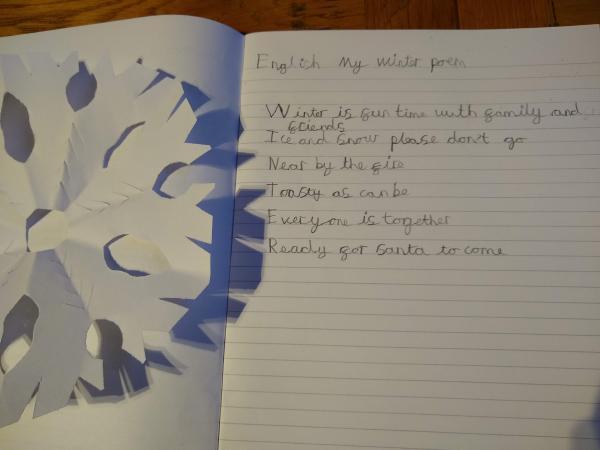 English My winter poem
Winter is fun time with family and
friends
Ice and Snow please don't go
Near by the fire
Toasty as can be
Every one is together
Ready for santa to come